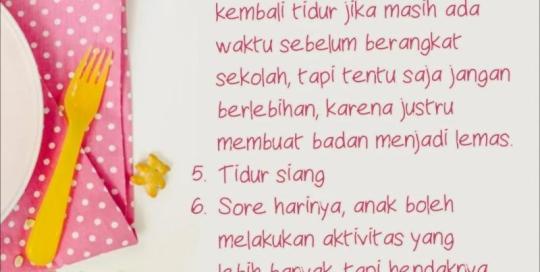 kembali tidur jika masih ada
waktu sebelum berangkat
sekolah, tapi tentu saja jangan
berlebihan, karena justru
membuat badan menjadi lemas.
5. Tidur siang
6. Sore harinya, anak boleh
melakukan aktivitas yang
lebih banyak, tapi hendaknya